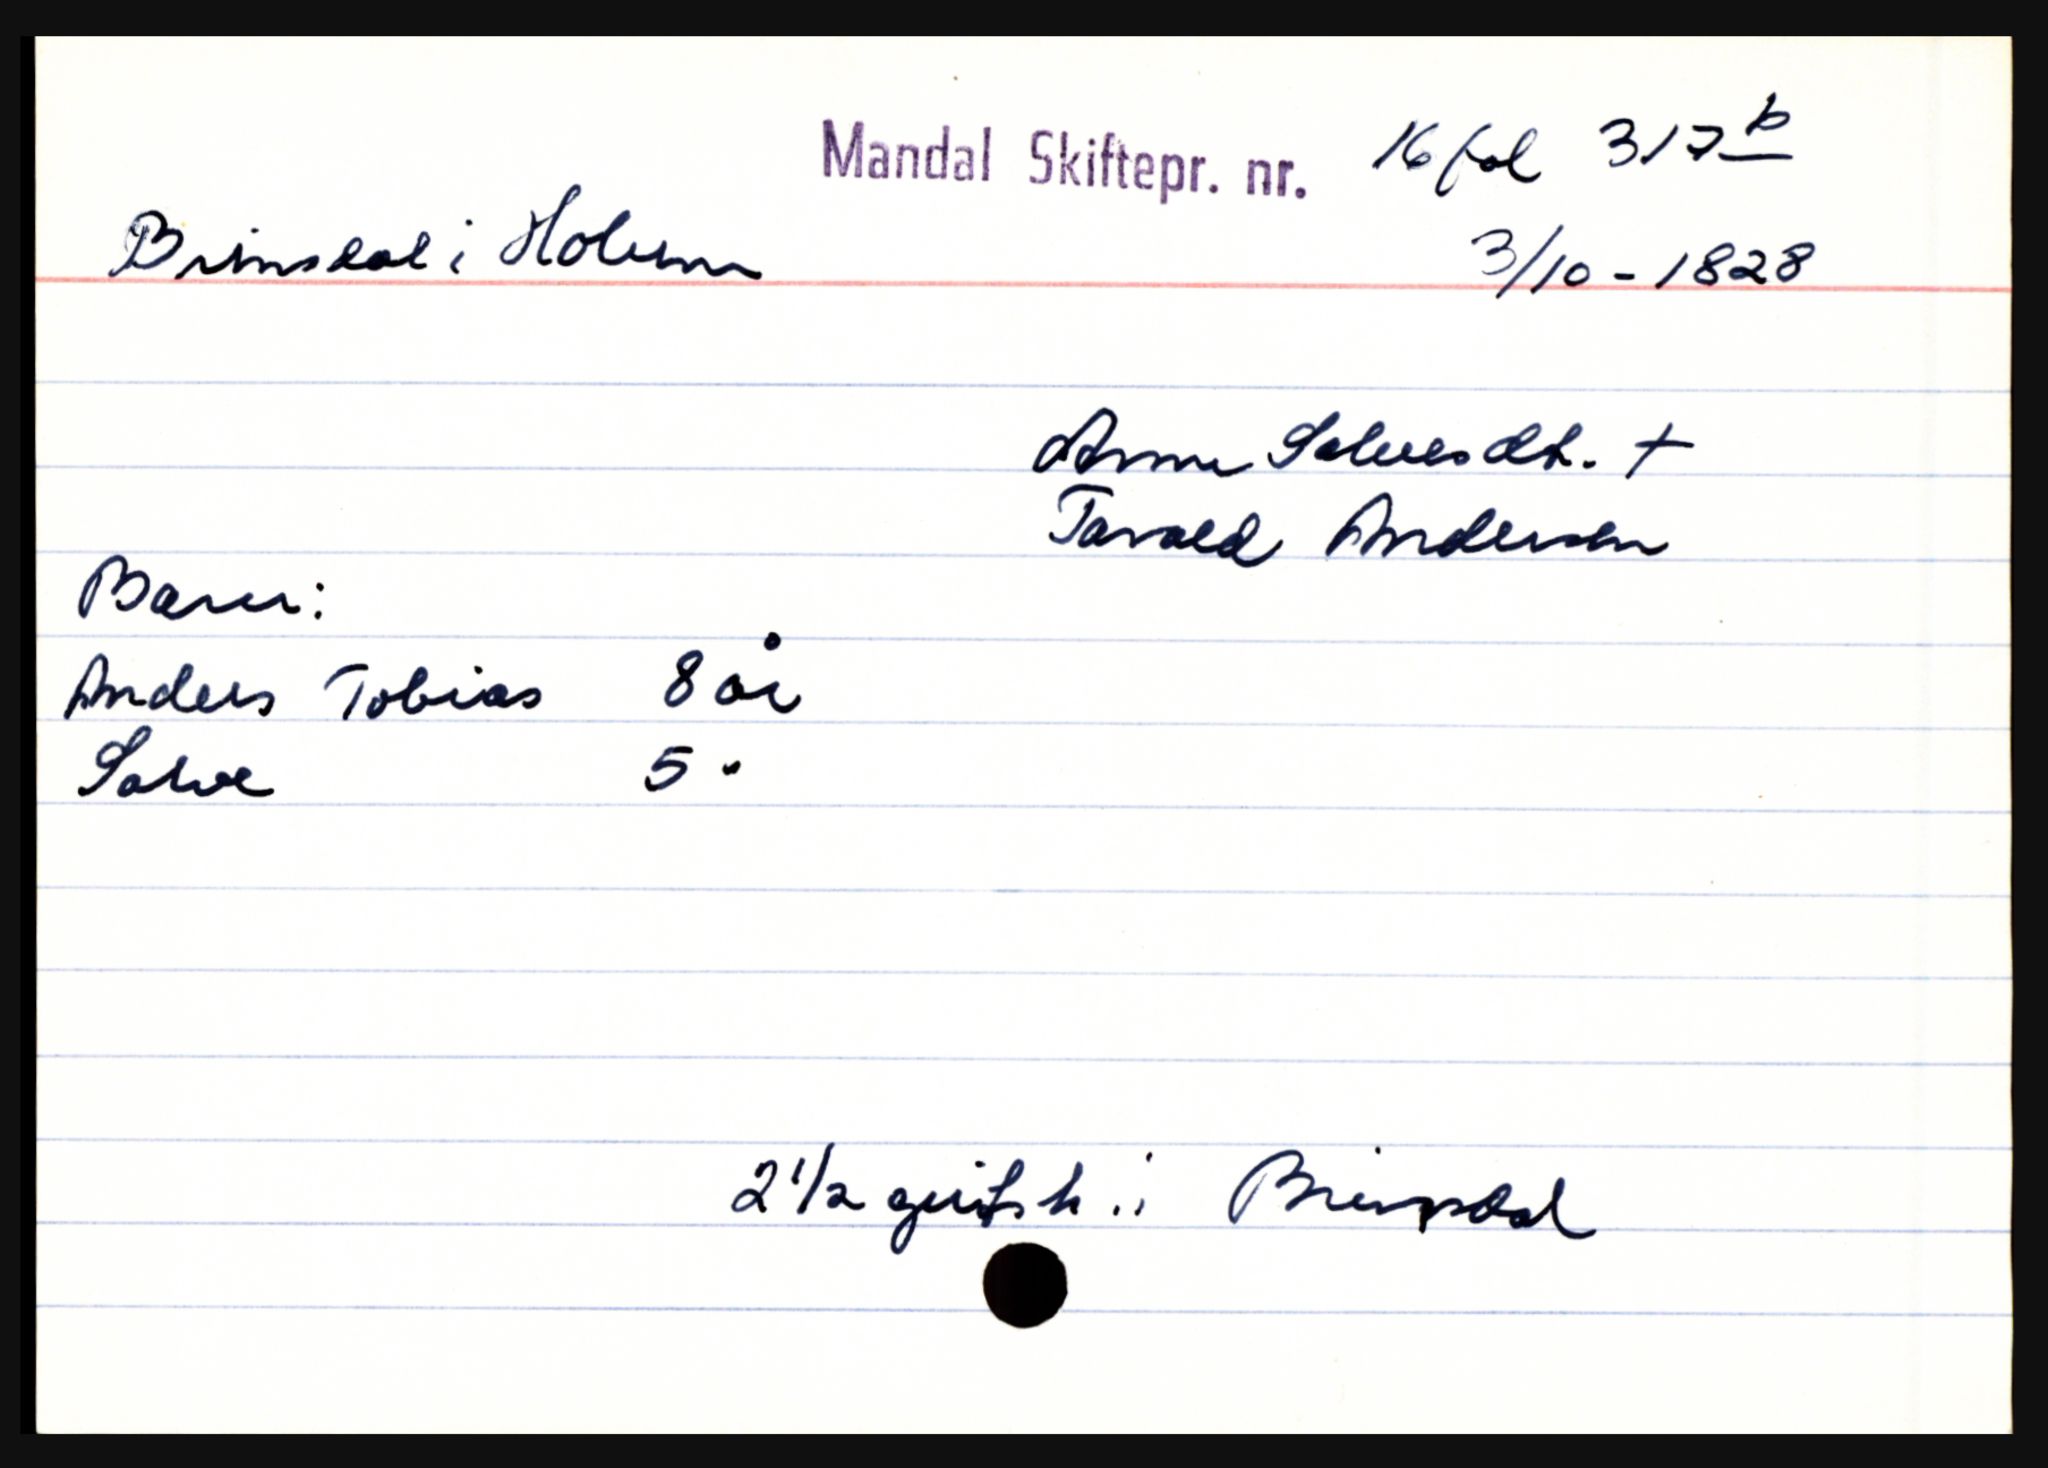 Mandal Skiftepr. nr. 16 fol 317 b
Brinsdal i Holum 3/10 - 1828
Anne Salvesdt. +
Tarald Andersen
Barn:
Anders Tobias 8 år
Salve 5 "
2 1/2 gids h. i Brinsdal